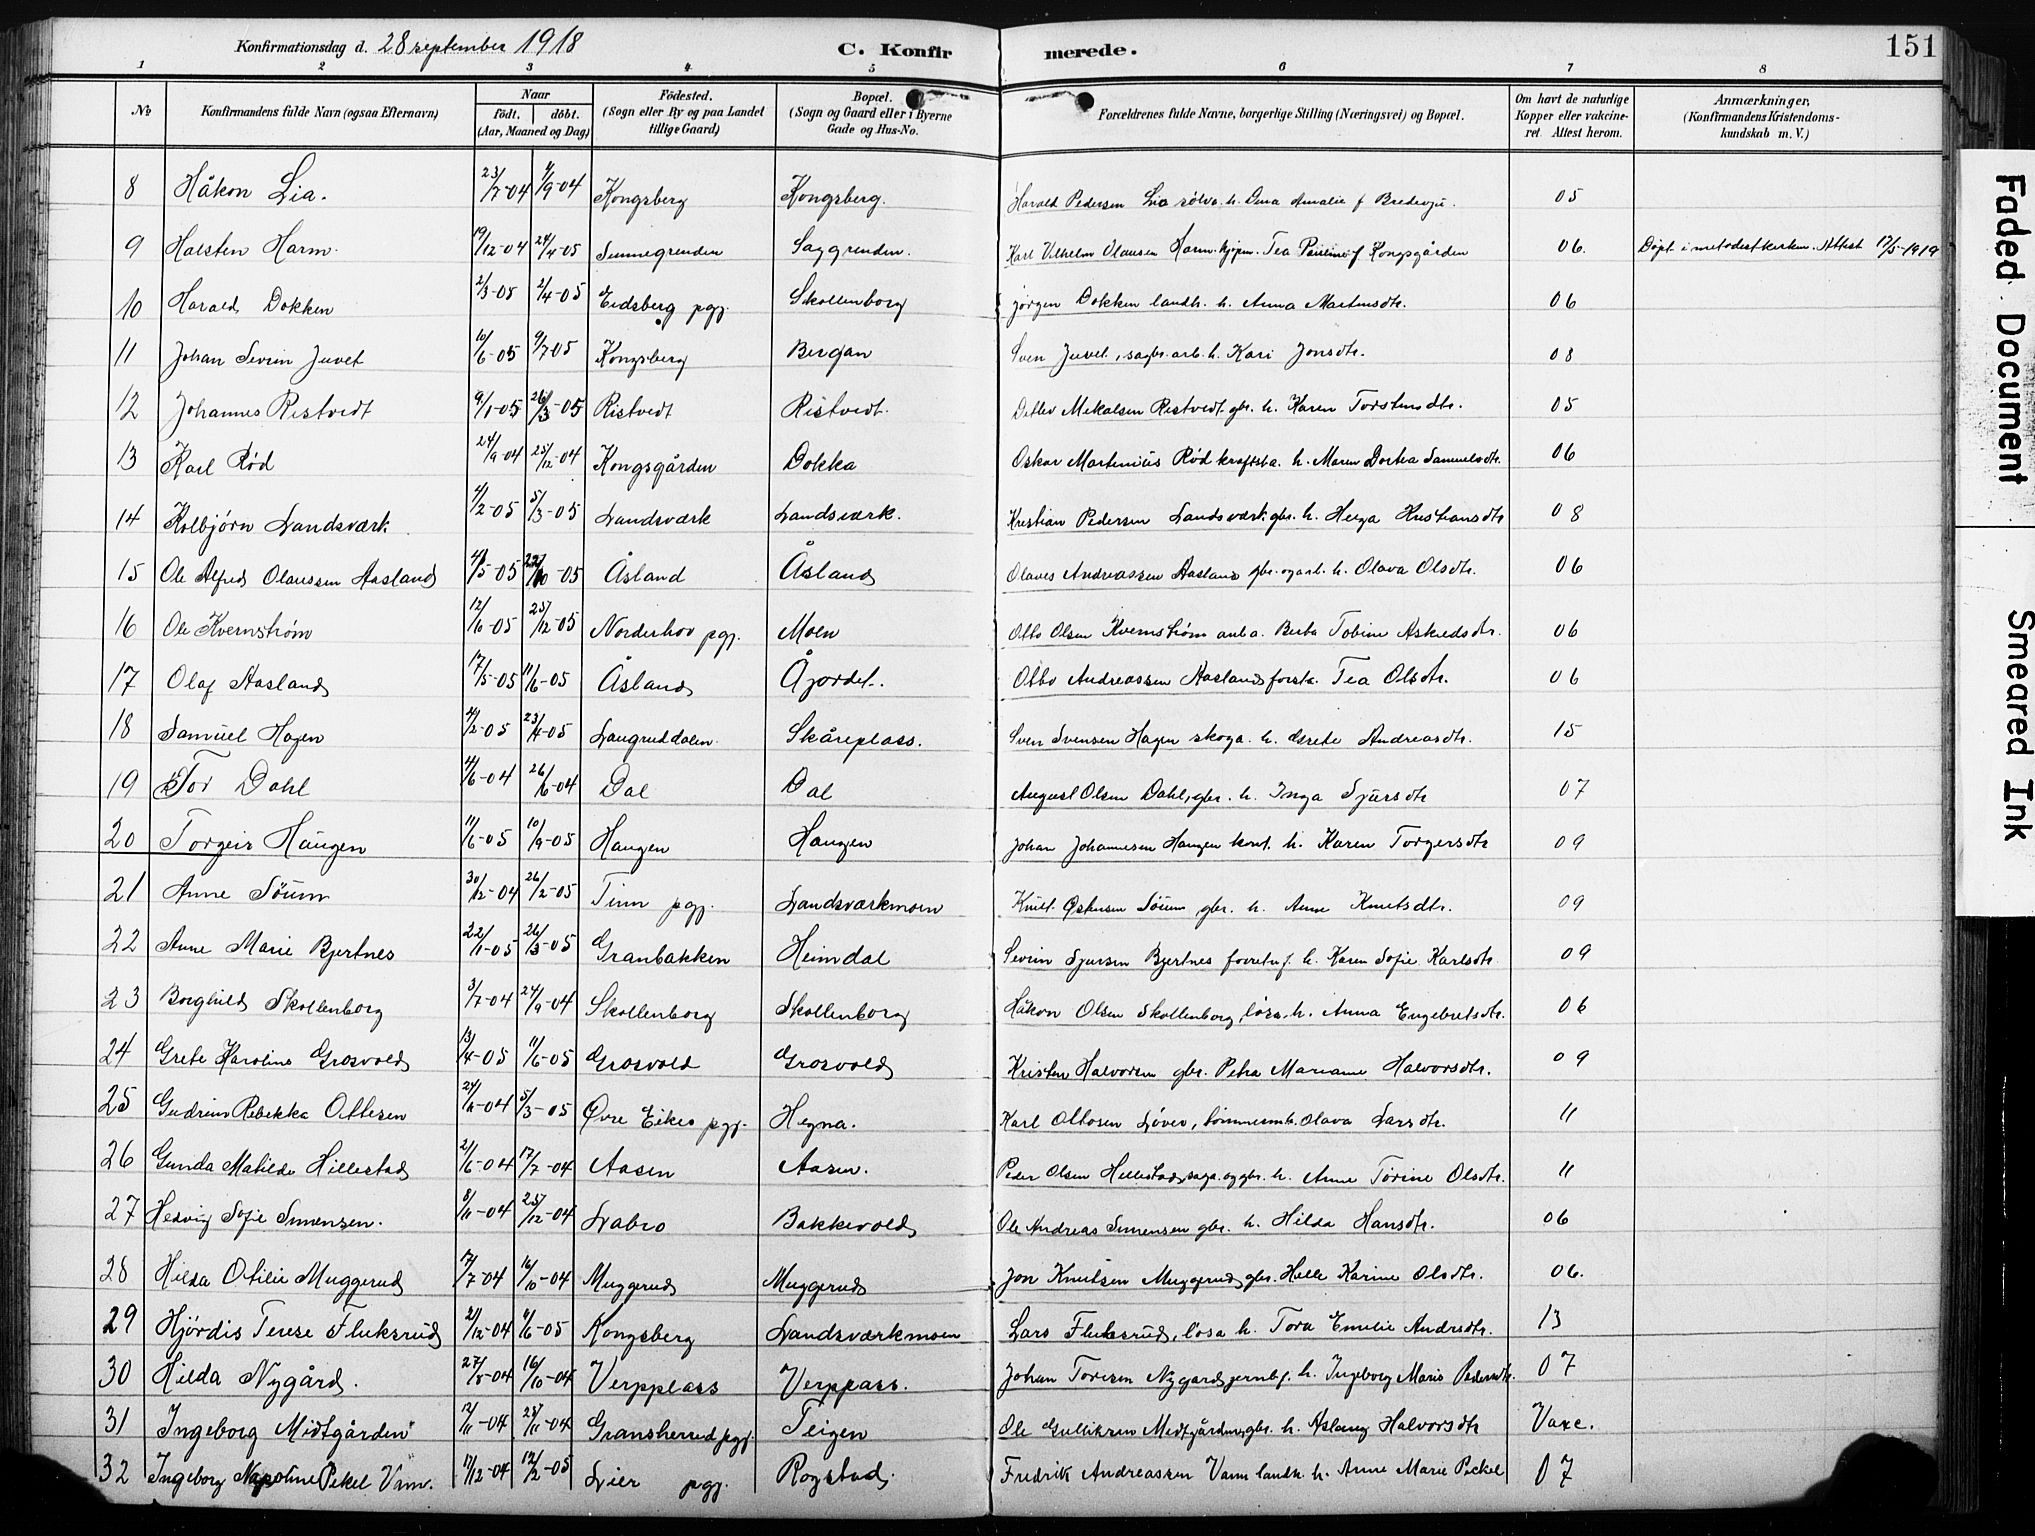 Konfirmationsdag d. 28 september 1918 C. Konfir merede. 151
1 2 3 4 5 6 7 8
No Konfirmandens fulde Navn (ogsaa Efternavn) Naar Födt. döbt. (Aar, Maaned og Dag) Födested. (Sogn eller By og paa Landet tillige Gaard) Bopæl. (Sogn og Gaard eller i Byerne Gade og Hus-No. Forældrenes fulde Navne, borgerlige Stilling (Næringsvei) og Bopæl. Om havt de naturlige Kopper eller vakcineret. Attest herom. Anmærkninger. (Konfirmandens Kristendomskundskab m. V.)
8 Håkon Lia. 23/7-04 4/9-04 Kongsberg Kongsberg. Harald Pedersen Lia sølva. h. Dina Amalie f 05
9 Halsten Harm. 19/12-04 24/4-05 Sunnegrenden Saggrenden. Karl Vilhelm Olausen Harm kjøpm. Tea Pauline f Kongsgården 06. Døpt i metodistkirken. Attest 17/5-1919
10 Harald Dokken 2/3-05 2/4-05 Eidsberg pgj. Skollenborg Jørgen Dokken landh. h. Anna Martinsdtr. 06
11 Johan Sevrin Juvet 10/6-05 9/7 05 Kongsberg Bergan Sven Juvet, sagbr. arb. h. Kari Jonsdtr. 08
12 Johannes Ristvedt 9/1-05 26/3-05 Ristvedt Ristvedt. Detlev Mikalsen Ristvedt gbr. h. Karen Torstensdtr. 05
13 Karl Rød 24/9-04 25/12-04 Kongsgården Dokka Oskar Martinius Rød kraftsta. h. Maren Dortea Samuelsdtr. 06
14 Kolbjørn Landsværk 4/2-05 5/3-05 Landsværk Landsværk. Kristian Pedersen Landsværk gbr. h. Helga Kristiansdtr 08
15 Ole Alfred Olaussen Aasland 4/5-05 22/10-05 Åsland Åsland Olaves Andreassen Aasland gbr. og arb. h. Olava Olsdtr. 06
16 Ole Kvernstrøm 12/10-05 25/12-05 Norderhov pgj. Moen Otto Olsen Kvernstrøm anl a. Berta Tobine Aslredsdtr. 06
17 Olaf Aasland 17/5-05 11/6-05 Åsland Åjordet. Otto Andreassen Aasland forsta. Tea Olsdtr. 06
18 Samuel Hagen 4/2-05 23/4-05 Laugruddalen. Skåreplass. Sven Svensen Hagen skoga. h. Grete Andreasdtr. 15
19 Tor Dahl 4/6-04 26/6-04 Dal Dal August Olsen Dahl, gbr. h. Inga Sjursdtr 07
20 Torgeir Haugen 11/6-05 10/9-05 Haugen Haugen Johan Johannesen Haugen kont. h. Karen Torgersdtr 09
21 Anne Søum 30/12-04 26/2-05 Tinn pgj. Landsværkmoen Knut Østensen Søum gbr. h. Anne Knutsdtr. 09
22 Anne Marie Bjertnes 22/1-05 26/3-05 Granbakken Heimdal Sevrin Sjursen Bjertnes forretnf. h. Karen Sofie Karlsdtr 09
23 Borghild Skollenborg 3/7-04 24/9-04 Skollenborg Skollenborg Håkon Olsen Skollenborg, løsa. h. Anna Engebretsdtr. 06
24 Grete Karoline Grosvold 13/4-05 11/6-05 Grosvold Grosvold Kristen Halvorsen gbr. Petra Mariane Halvorsdtr. 09
25 Gudrun Rebekka Ottesen 24/11-04 5/3-05 Øvre Eiker pgj. Hegna. Karl Ottosen Løver, tømmerm. h. Olava Larsdtr. 11
26 Gunda Matilde Hillestad 21/6-04 17/7-04 Aasen Aasen. Peder Olsen Hillestad, saga. og gbr. h. Anne Torine Olsdtr. 11
27 Hedvig Sofie Simensen. 8/11-04 25/12-04 Labro Bakkevold Ole Andreas Simensen gbr. h. Hilda Hansdtr. 06
28 Hilda Otilie Muggerud 17/7-04 16/10-04 Muggerud Muggerud Jon Knutsen Muggerud gbr. Helle Karine Olsdtr. 06.
29 Hjørdis Terese Fluksrud 21/12-04 4/6-05 Kongsberg Landsværkmoen Lars Fluksrud, løsa h. Tora Emelie Andrsdtr. 13
30 Hilda Nygård. 27/8-04 16/10-04 Verpplass Verpplass. Johan Toresen Nygård jernbf. h. Ingeborg Marie Pedersdtr. 07
31 Ingeborg Midtgården 12/11-04 28/11-04 Gransherred pgj. Teigen Ole Gulliksen Midtgården, gbr. h. Aslaug Halvorsdtr Vaxc.
32 Ingeborg Napoline Pekel Vinn. 17/12-04 12/2-05 Lier pgj. Rogstad. Fredrik Andreassen Vann landh. h. Anne Marie Peckel 07
Faded Document
Smeared Ink